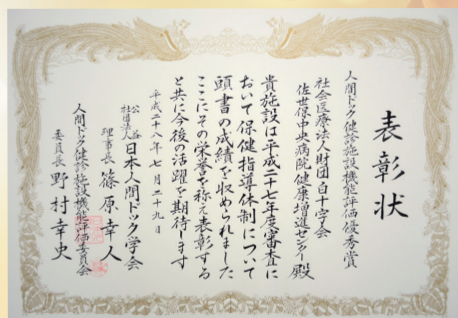 表彰状
人間ドック健診施設機能評価優秀賞
社会医療法人財団白十字会
佐世保中央病院健康増進センター 殿
貴施設は平成二十七年度審査に
おいて保健指導体制について
頭書の成績を収められました
ここにその栄誉を称え表彰する
と共に今後の活躍を期待します
平成二十八年七月二十九日
公益社団法人日本人間ドック学会
理事長 篠原幸人
人間ドック健診施設機能評価委員会
委員長 野村幸史